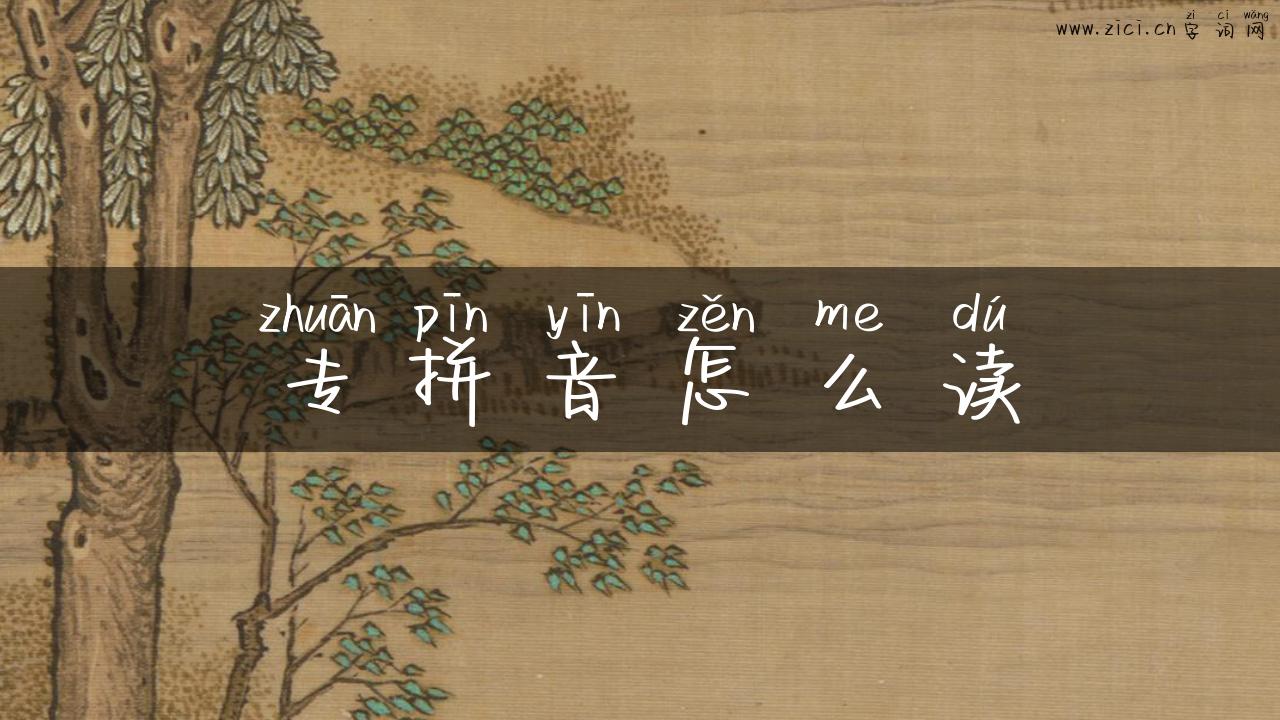 zì cí wǎng
www.zici.cn 字词网
zhuān pīn yīn zěn me dú
专拼音怎么读